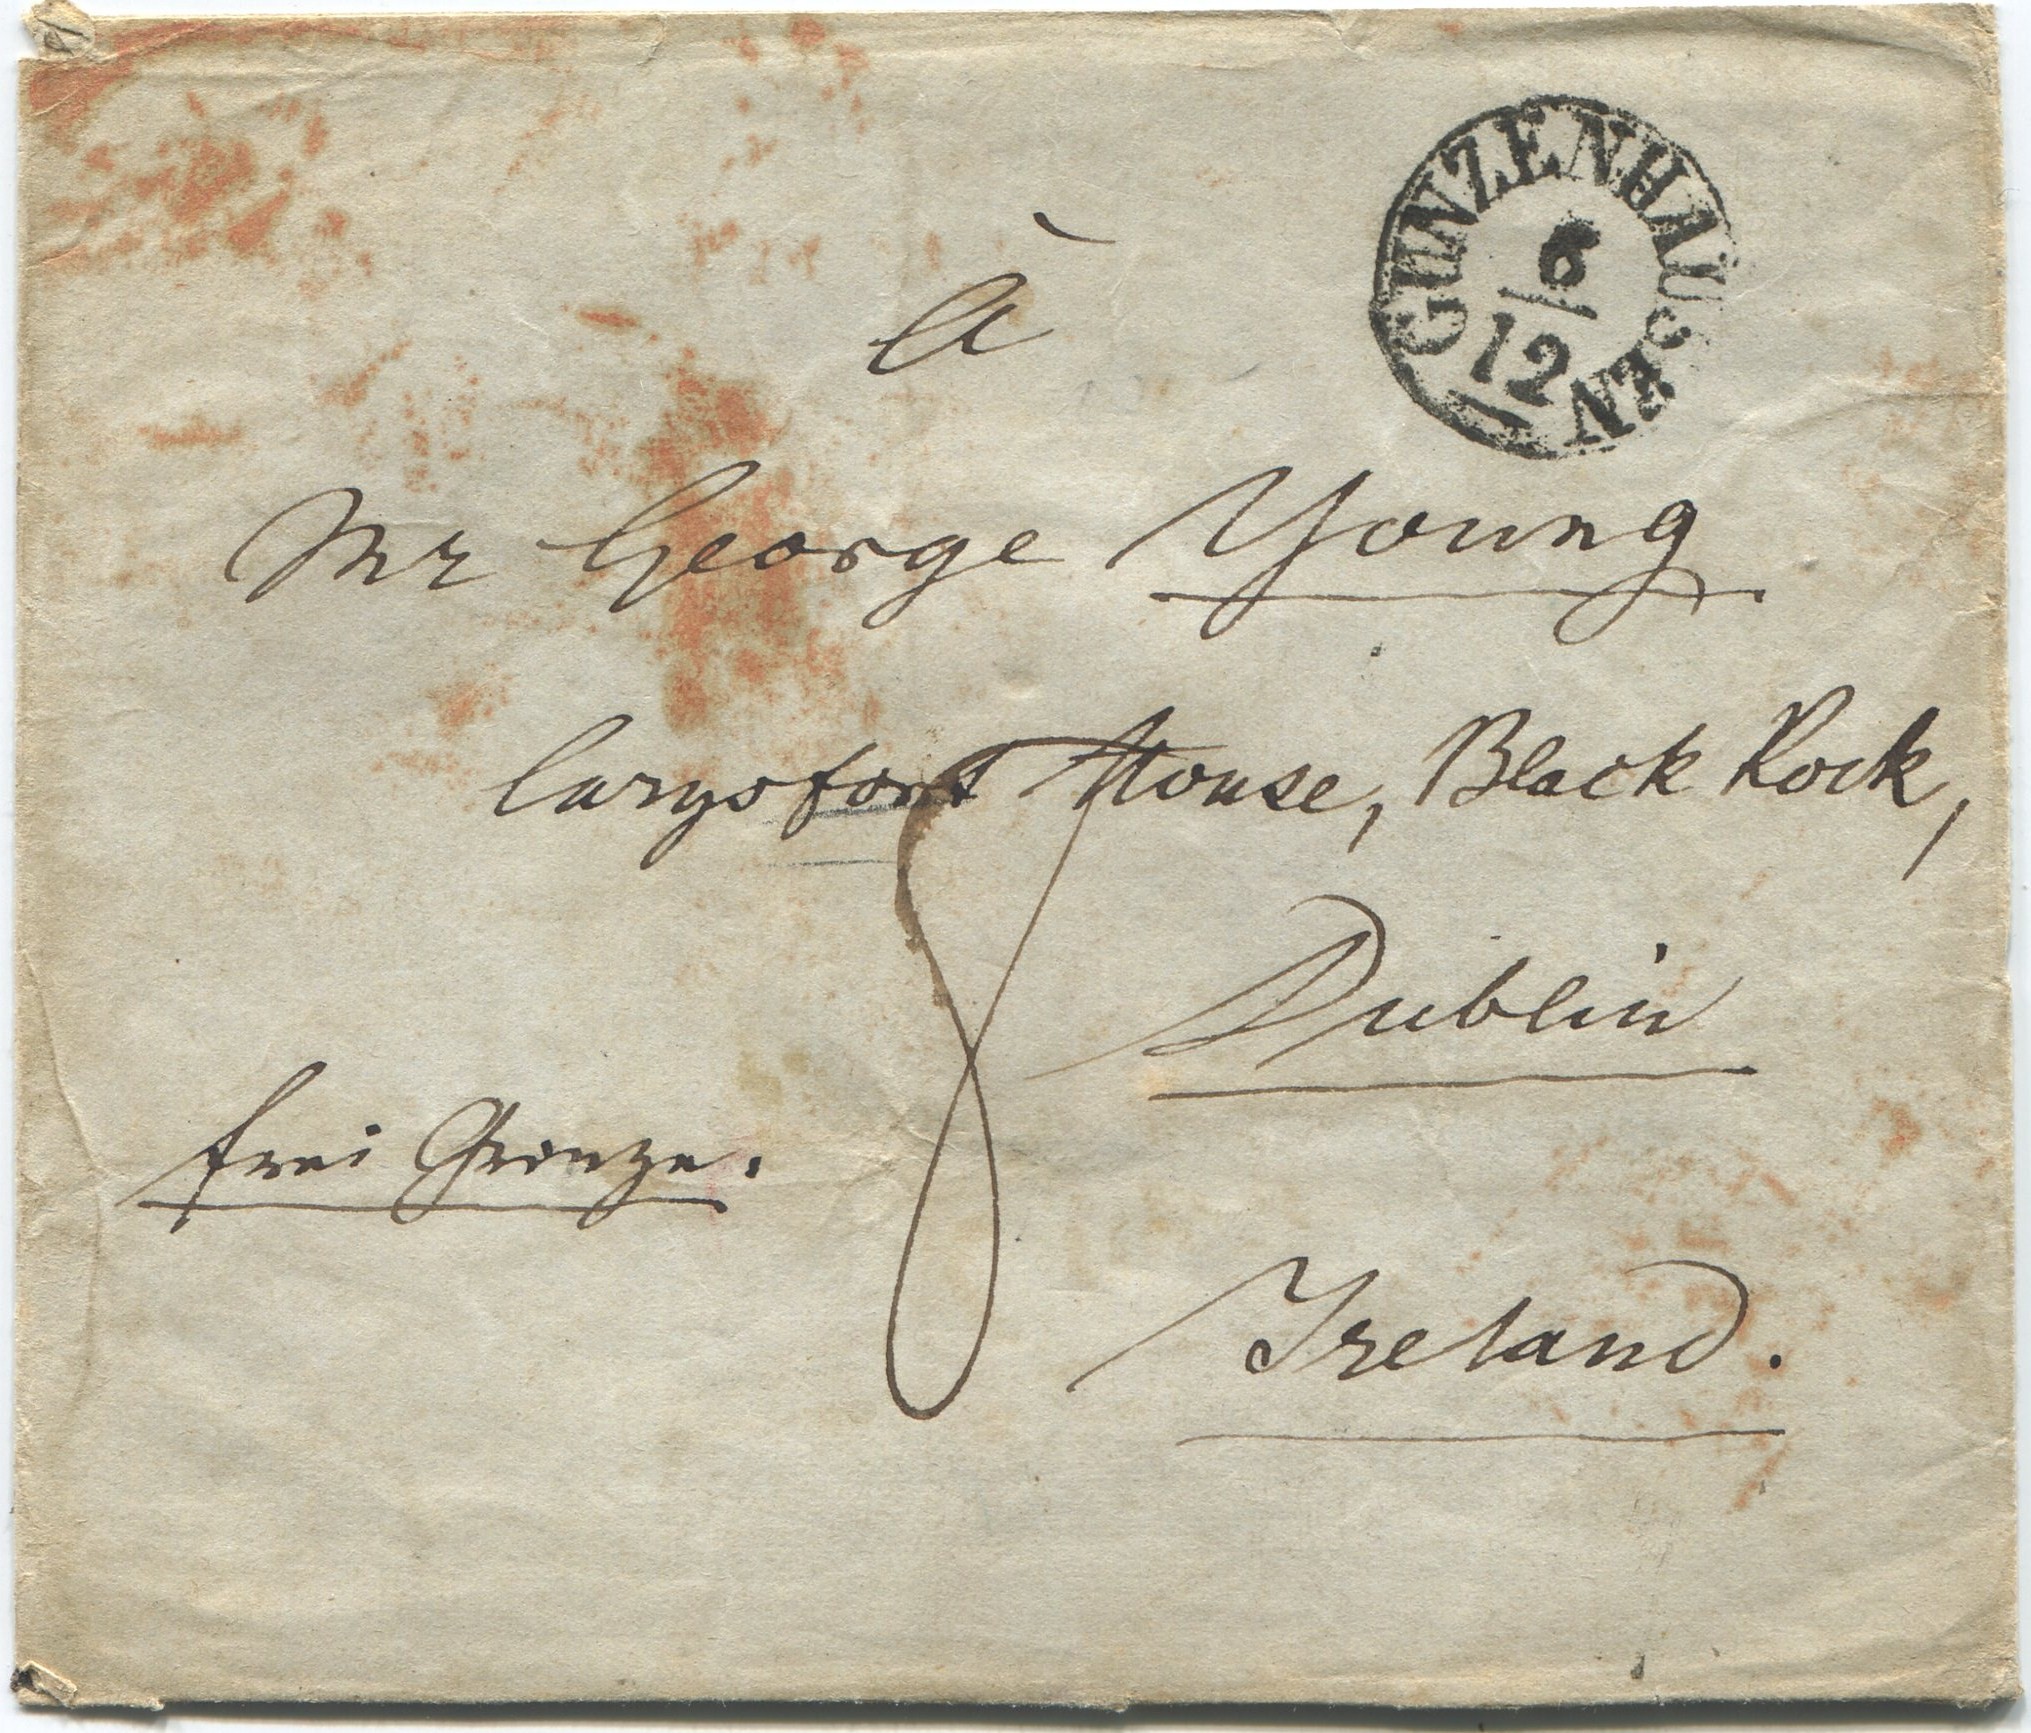 GUNZENHAUSEN
6
12
à
Mr George Young
Carysfort House, Black Rock,
8
Dublin
frei Grenze.
Ireland.